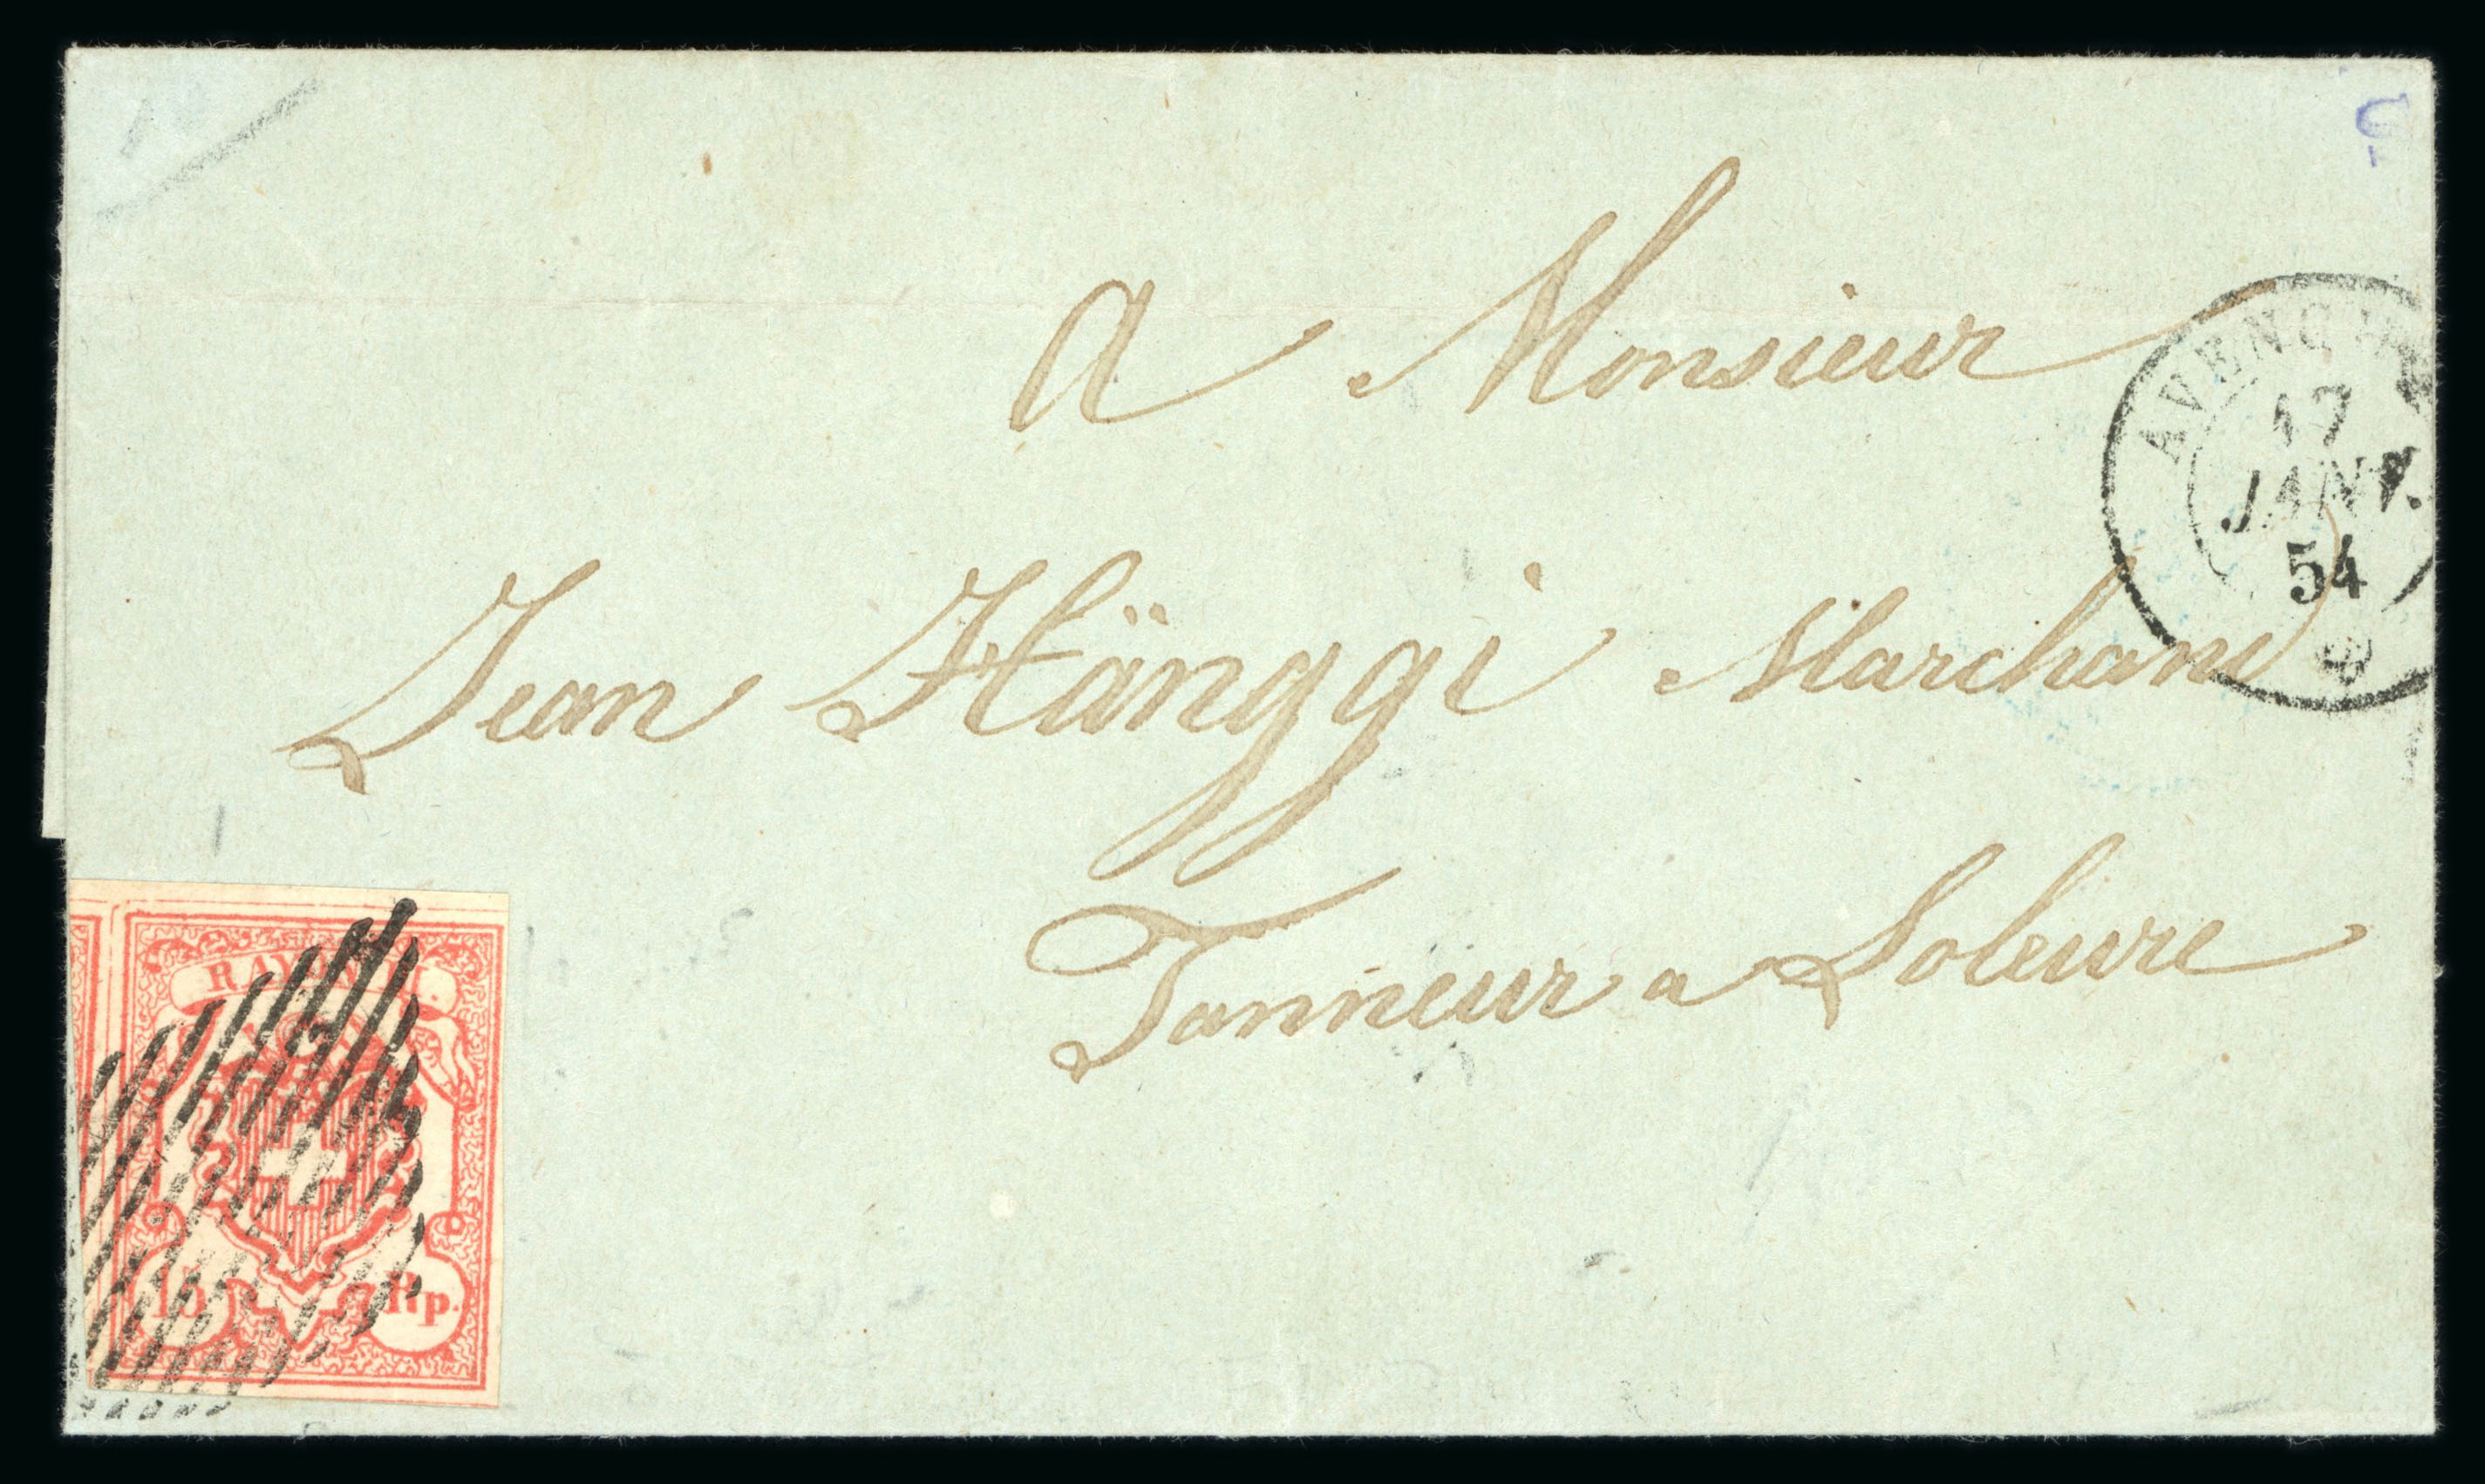 A Monsieur
AVENCHES
17
JANV.
54
Jean Hänggi Marchand
Tanneur a Soleure
RAYON III.
15 Rp.